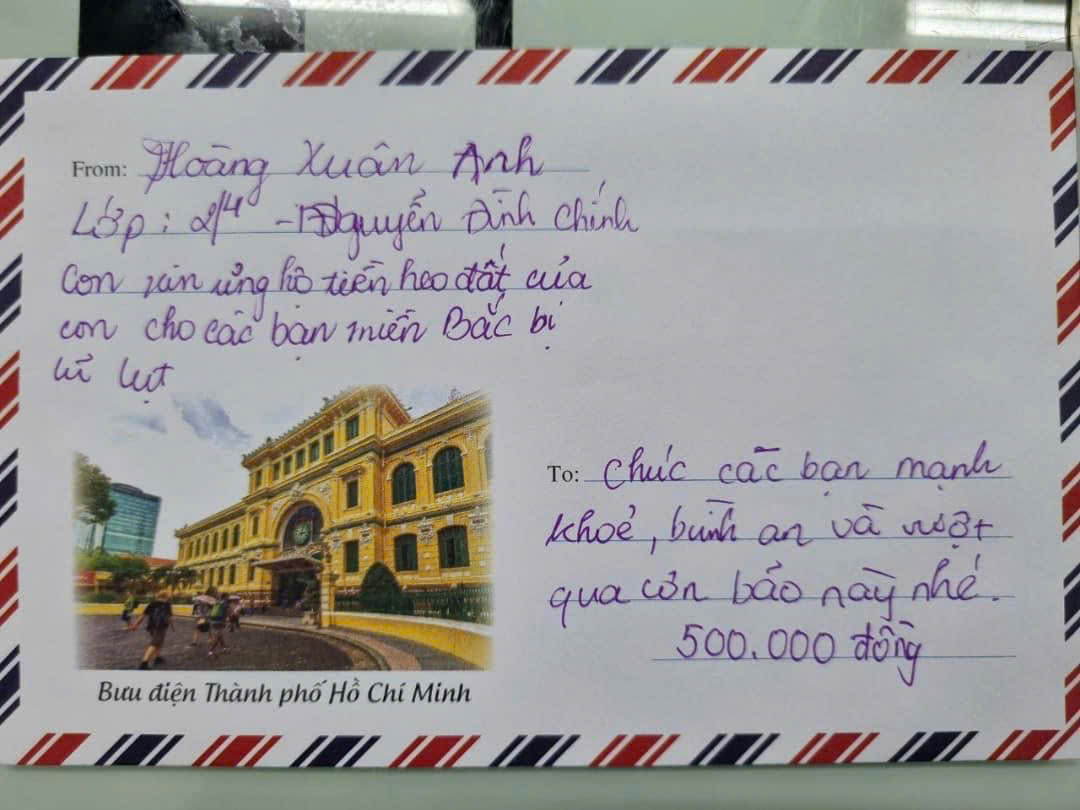 From: Hoàng Xuân Anh
Lớp: 2/4 - Nguyễn Đình Chính
Con xin ủng hộ tiền heo đất của
con cho các bạn miền Bắc bị
lũ lụt
To: Chúc các bạn mạnh
khoẻ, bình an và vượt
qua cơn bão này nhé.
500.000 đồng
Bưu điện Thành phố Hồ Chí Minh